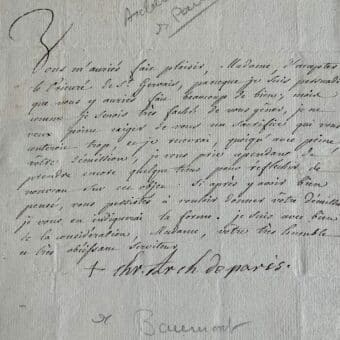 Archev
de Paris
Vous m'auriés fait plaisir, Madame, d'accepter
le Prieuré de St Gervais, parceque je suis persuadé
que vous y auriés fait beaucoup de bien; mais
comme je serois très faché de vous gêner, je ne
veux point exiger de vous un sacrifice qui vous
couteroit trop, et je recevrai, quoiqu'avec peine,
vôtre démission, je vous prie cependant de
prendre encore quelque tems pour reflechir de
nouveau sur cet objet. Si après y avoir bien
pensé, vous persistés à vouloir donner vôtre démission
je vous en indiquerai la forme. je suis avec bien
de la considération, Madame, vôtre très humble
et très obéissant Serviteur
+ chr. Arch de paris.
de Beaumont